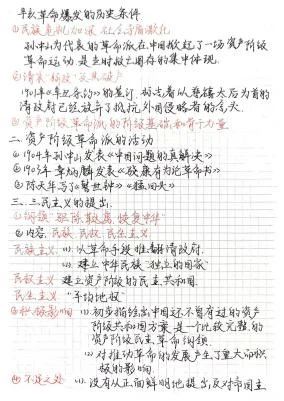 辛亥革命爆发的历史条件
①民族危机加深,社会矛盾激化
孙中山为代表的革命派在中国掀起了一场资产阶级
革命运动,是当时救亡图存的集中体现。
②清末"新政"及其破产
1901年《辛丑条约》的签订,标志着以慈禧太后为首的
清政府已经放弃了抵抗外国侵略者的念头。
③资产阶级革命派的阶级基础和骨干力量
二、资产阶级革命派的活动
①1904年孙中山发表《中国问题的真解决》
②1903年章炳麟发表《驳康有为论革命书》
③陈天华写了《警世钟》《猛回头》
三、三民主义的提出
①纲领"驱除鞑虏,恢复中华"
②内容:民族、民权、民生主义
民族主义:(1).以革命手段推翻清政府.
(2).建立中华民族"独立的国家"
民权主义 建立资产阶级的民主共和国.
民生主义 "平均地权"
③积极影响 (1).初步描绘出中国还不曾有过的资产
阶级共和国方案,是一个比较完整的
资产阶级民主革命纲领.
(2).对推动革命的发展产生了重大而积
极的影响.
④不足之处 (1).没有从正面鲜明地提出反对帝国主